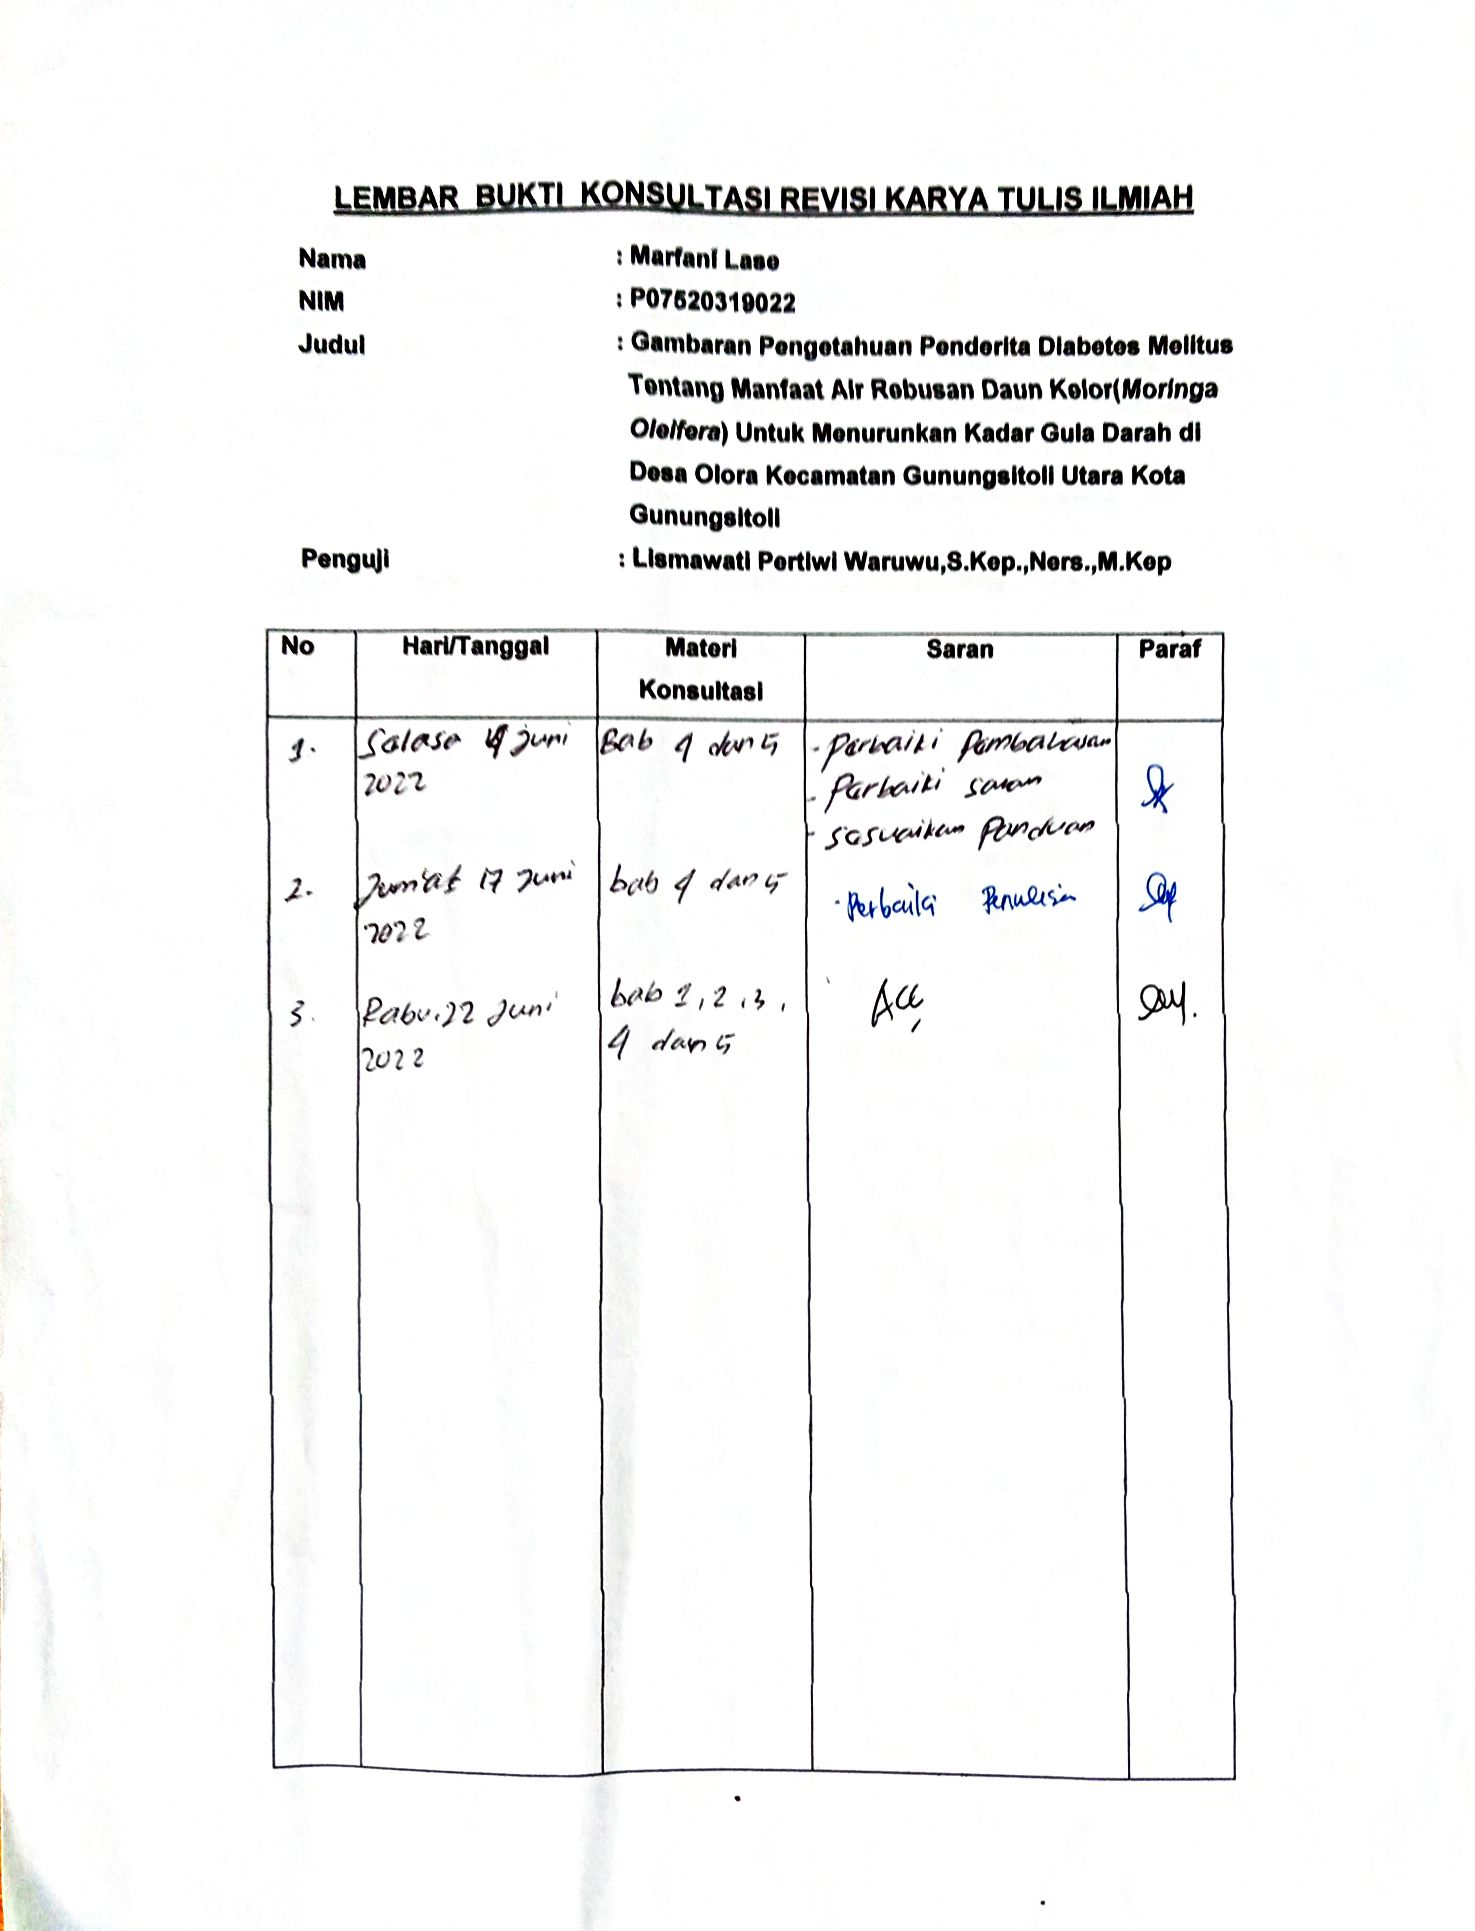 LEMBAR BUKTI KONSULTASI REVISI KARYA TULIS ILMIAH
Nama : Marfani Lase
NIM : P07520319022
Judul : Gambaran Pengetahuan Penderita Diabetes Melitus
Tentang Manfaat Air Rebusan Daun Kelor(Moringa
Oleifera) Untuk Menurunkan Kadar Gula Darah di
Desa Olora Kecamatan Gunungsitoli Utara Kota
Gunungsitoli
Penguji : Lismawati Pertiwi Waruwu,S.Kep.,Ners.,M.Kep
No Hari/Tanggal Materi Saran Paraf
Konsultasi
1. Selasa juni Bab 4 dan 5 - Perbaiki Pembahasan
2022 - Perbaiki saran
- sesuaikan Panduan
2. Jum'at 17 Juni bab 4 dan 5 - Perbaiki Penulisan
2022
3. Rabu, 22 Juni bab 1, 2, 3, Acc
2022 4 dan 5